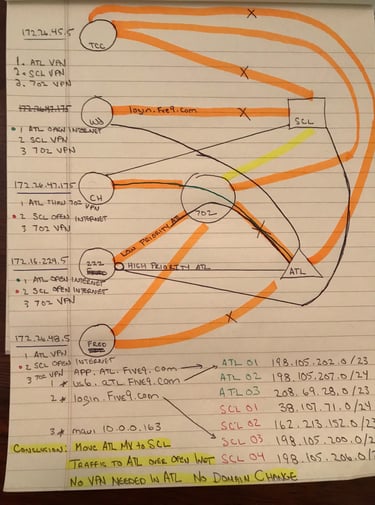 172.26.45.5
TCC
1. ATL VPN
2. SCL VPN
3. 702 VPN
172.26.47.175
login.five9.com
SCL
1 ATL OPEN INTERNET
2 SCL VPN
3 702 VPN
172.26.47.175
CH
702
1 ATL THAN 702 VPN
2 SCL OPEN INTERNET
3 702 VPN
LOW PRIORITY ATL
172.16.224.5
222
HIGH PRIORITY ATL
ATL
1 ATL OPEN INTERNET
2 SCL OPEN INTERNET
3 702 VPN
172.26.48.5
FRED
1 ATL VPN
2 SCL OPEN INTERNET
3 702 VPN
1 * app.atl.five9.com
* us6.atl.five9.com
2 * login.five9.com
3 * mavi 10.0.0.163
ATL 01 198.105.202.0/23
ATL 02 198.105.207.0/24
ATL 03 208.69.28.0/23
SCL 01 38.107.71.0/24
SCL 02 162.213.152.0/23
SCL 03 198.105.200.0/2
SCL 04 198.105.206.0/2
CONCLUSION: MOVE ATL MV TO SCL
TRAFFIC TO ATL OVER OPEN INET
NO VPN NEEDED IN ATL NO DOMAIN CHANGE